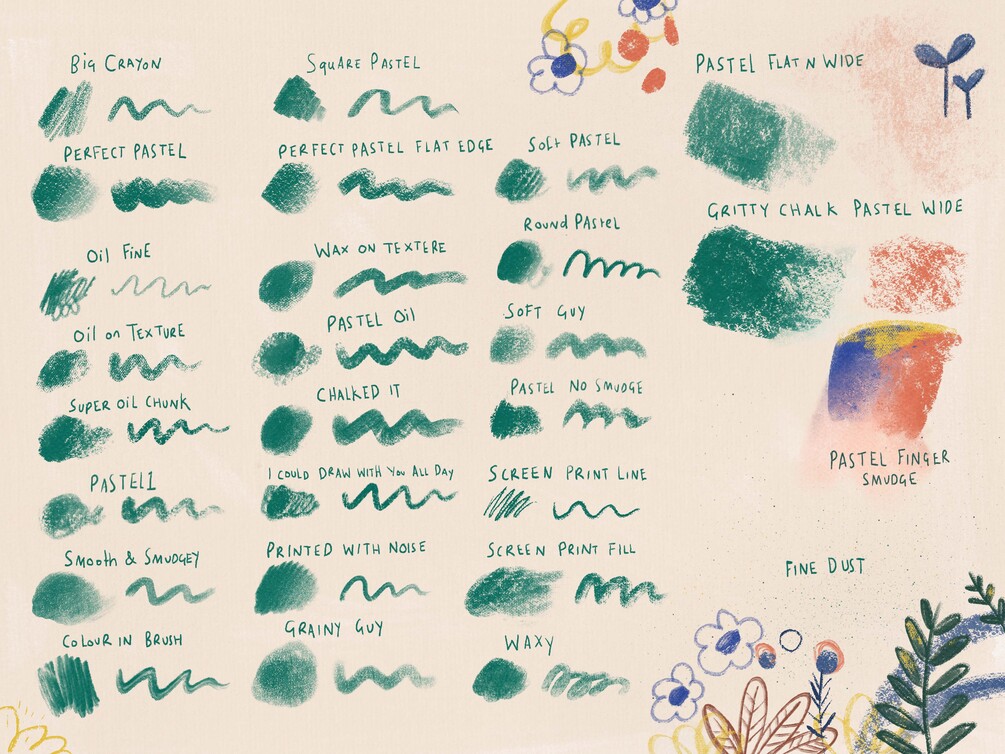 Big Crayon
Perfect Pastel
Oil Fine
Oil on Texture
Super Oil Chunk
Pastel1
Smooth & Smudgey
Colour in Brush
Square Pastel
Perfect Pastel Flat Edge
Wax on Textere
Pastel Oil
Chalked It
I could draw with you all day
Printed with Noise
Grainy Guy
Soft Pastel
Round Pastel
Soft Guy
Pastel No Smudge
Screen Print Line
Screen Print Fill
Waxy
Pastel Flat n Wide
Gritty Chalk Pastel Wide
Pastel Finger
Smudge
Fine Dust